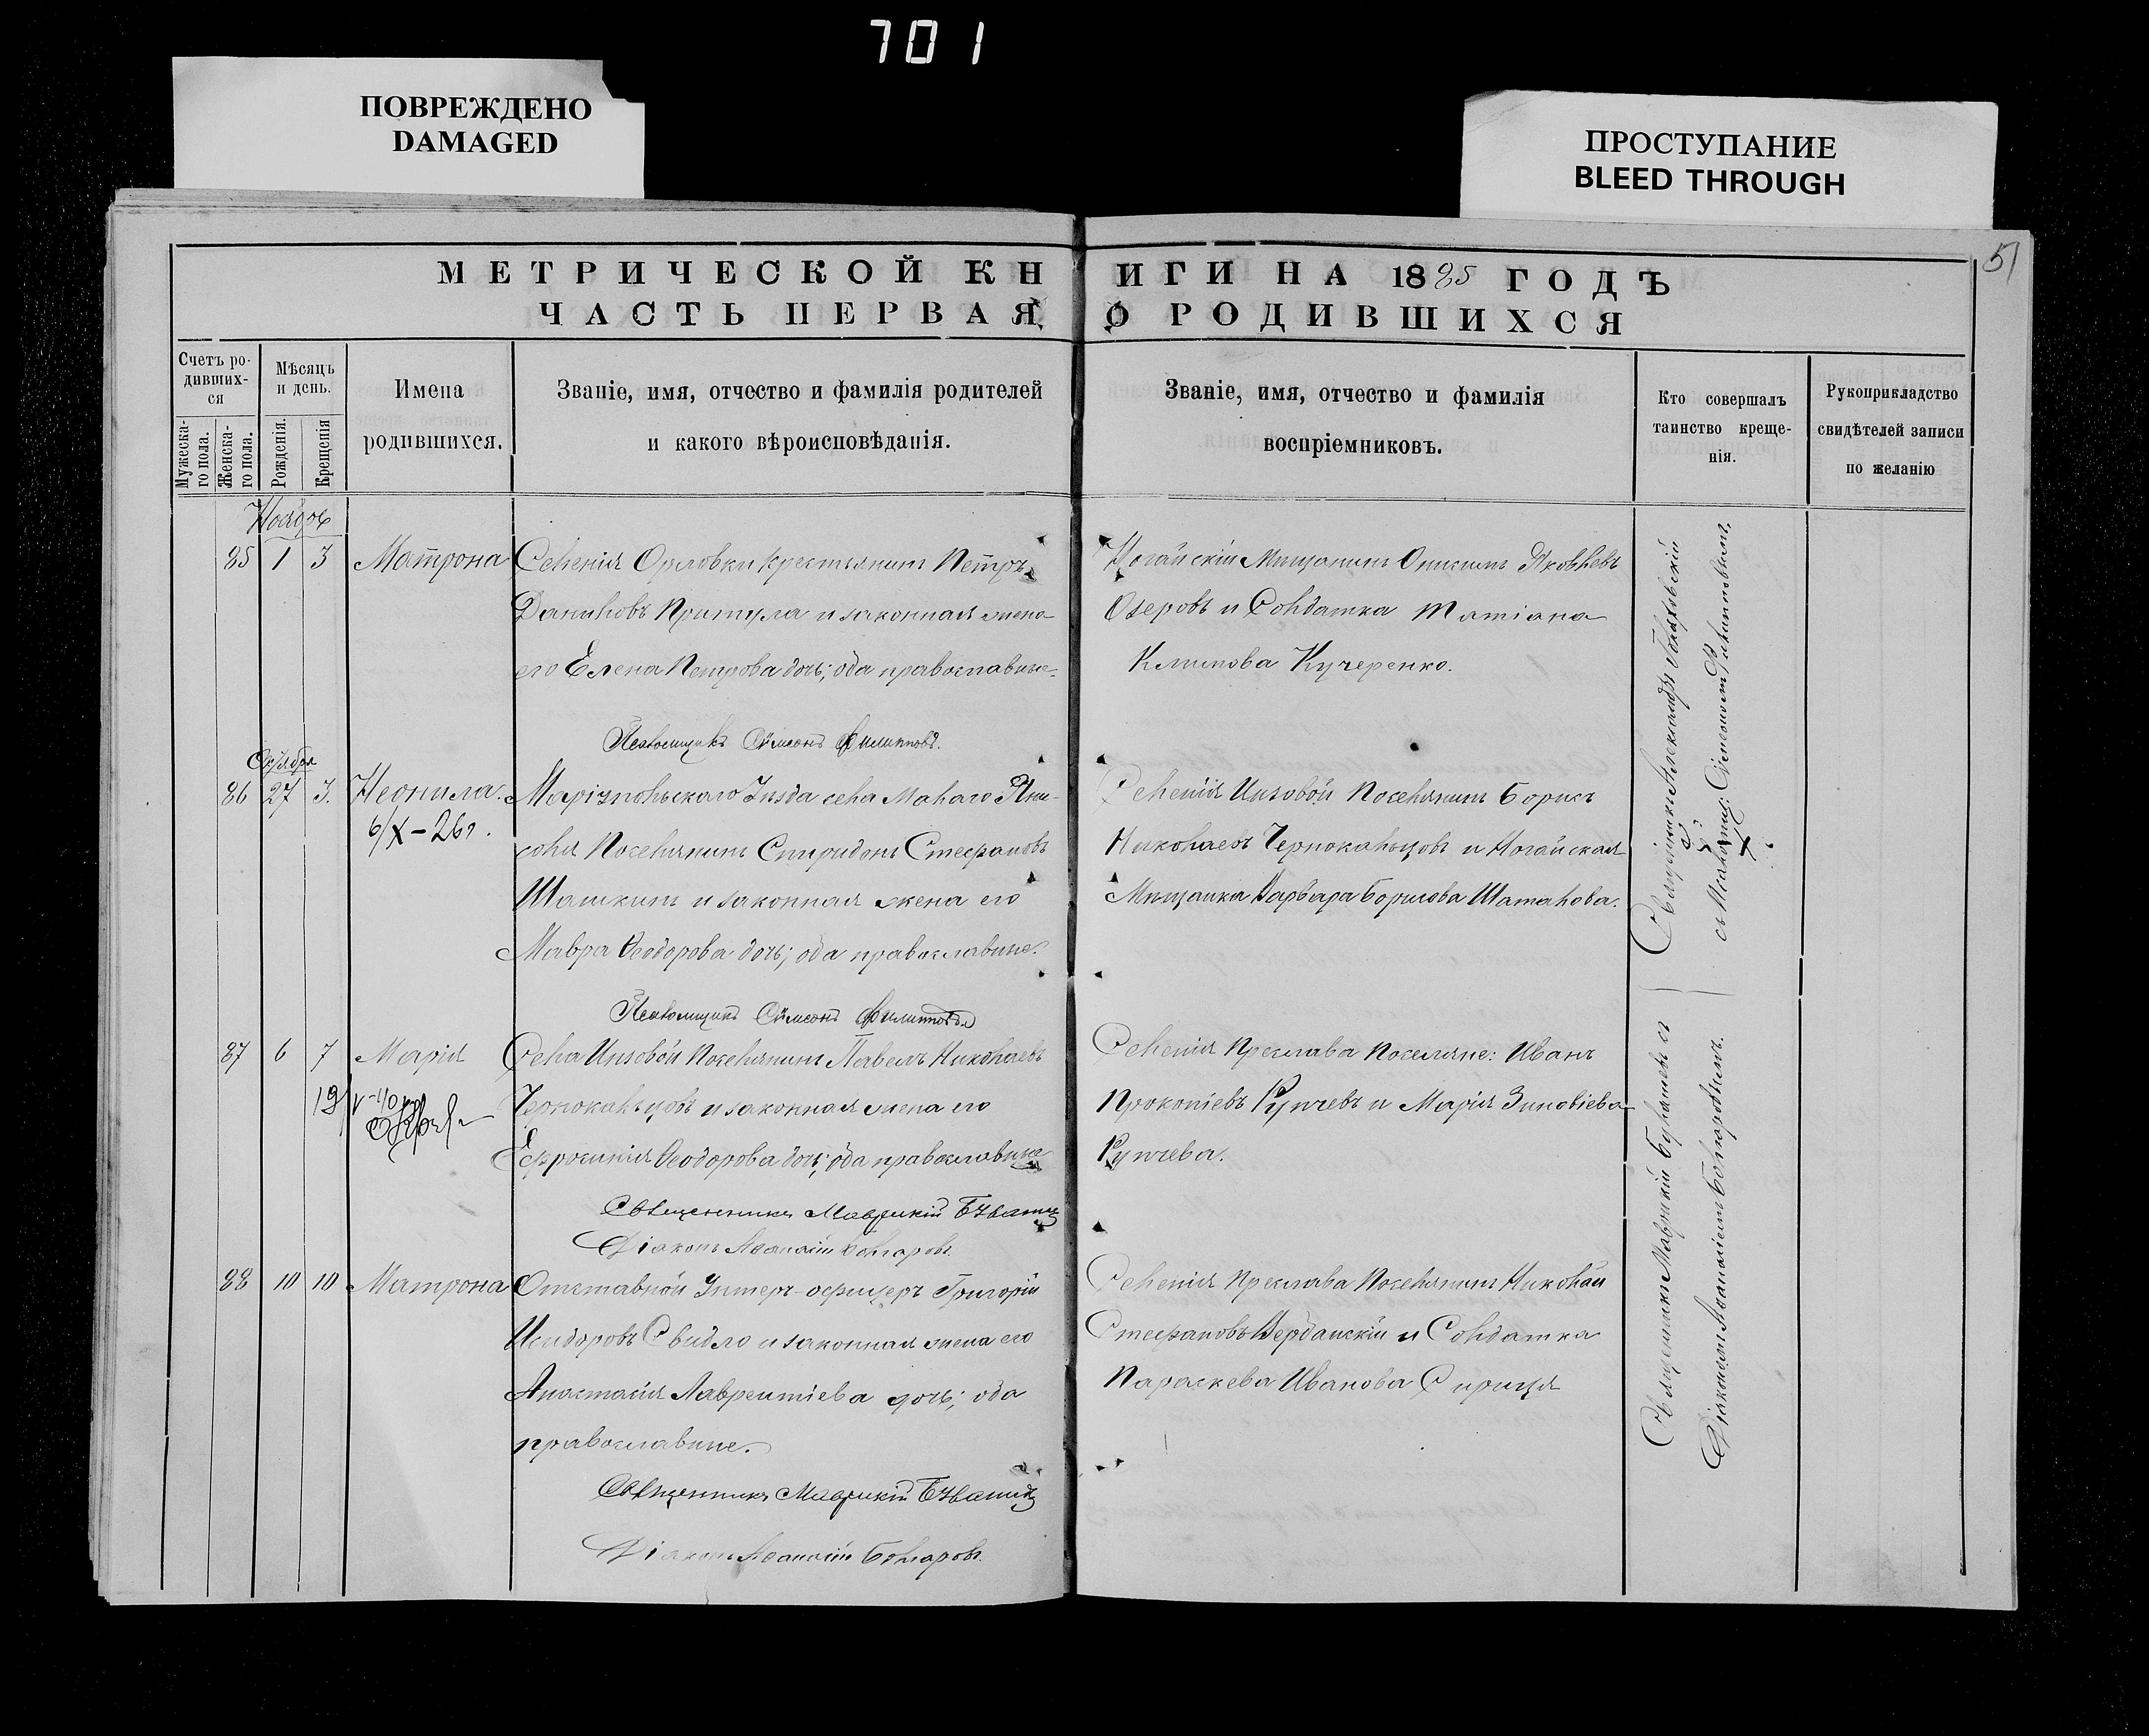 701
ПОВРЕЖДЕНО
DAMAGED
ПРОСТУПАНИЕ
BLEED THROUGH
51
МЕТРИЧЕСКОЙ КНИГИ НА 1885 ГОДЪ
ЧАСТЬ ПЕРВАЯ, О РОДИВШИХСЯ
Счетъ ро-
дивших-
ся
Мужеска-
го пола.
Женска-
го пола.
Мѣсяцъ
и день.
Рожденія.
Крещенія
Имена
родившихся.
Званіе, имя, отчество и фамилія родителей
и какого вѣроисповѣданія.
Званіе, имя, отчество и фамилія
воспріемниковъ.
Кто совершалъ
таинство креще-
нія.
Рукоприкладство
свидѣтелей записи
по желанію
Ноябрь
85 1 3 Матрона
Селенія Орловки крестьянинъ Петръ
Даниловъ Притула и законная жена
его Елена Петрова дочь; оба православные.
Псаломщикъ Симеонъ Филипповъ.
Ногайскій Мѣщанинъ Онисимъ Яковлевъ
Озеровъ и Солдатка Татіана
Климова Кучеренко.
Октября
86 27 3. Неонила.
6/X-26г.
Маріупольскаго Уѣзда села Малаго Яни-
соля Поселянинъ Спиридонъ Стефановъ
Шашкинъ и законная жена его
Мавра Ѳеодорова дочь; оба православные.
Псаломщикъ Симеонъ Филипповъ
Селенія Инзовой Поселянинъ Борисъ
Николаевъ Чернокальцовъ и Ногайская
Мѣщанка Варвара Борисова Шаталова.
Священникъ Александръ
съ Псаломщ. Симеономъ Филипповымъ.
87 6 7 Марія
Села Инзовой Поселянинъ Павелъ Николаевъ
Чернокальцовъ и законная жена его
Ефросинія Ѳеодорова дочь; оба православные
Священникъ Маврикій
Діаконъ Аѳанасій Болгаровъ.
Селенія Преслава Поселяне: Иванъ
Прокопіевъ Купчевъ и Марія Зиновіева
Купчева.
88 10 10 Матрона
Отставной Унтеръ-офицеръ Григорій
Исидоровъ Свидло и законная жена его
Анастасія Лаврентіева дочь; оба
православные.
Священникъ Маврикій
Діаконъ Аѳанасій Болгаровъ.
Селенія Преслава Поселянинъ Николай
Стефановъ Верданскій и Солдатка
Параскева Иванова Сирица
Священникъ Маврикій съ
Діакономъ Аѳанасіемъ Болгаровымъ.